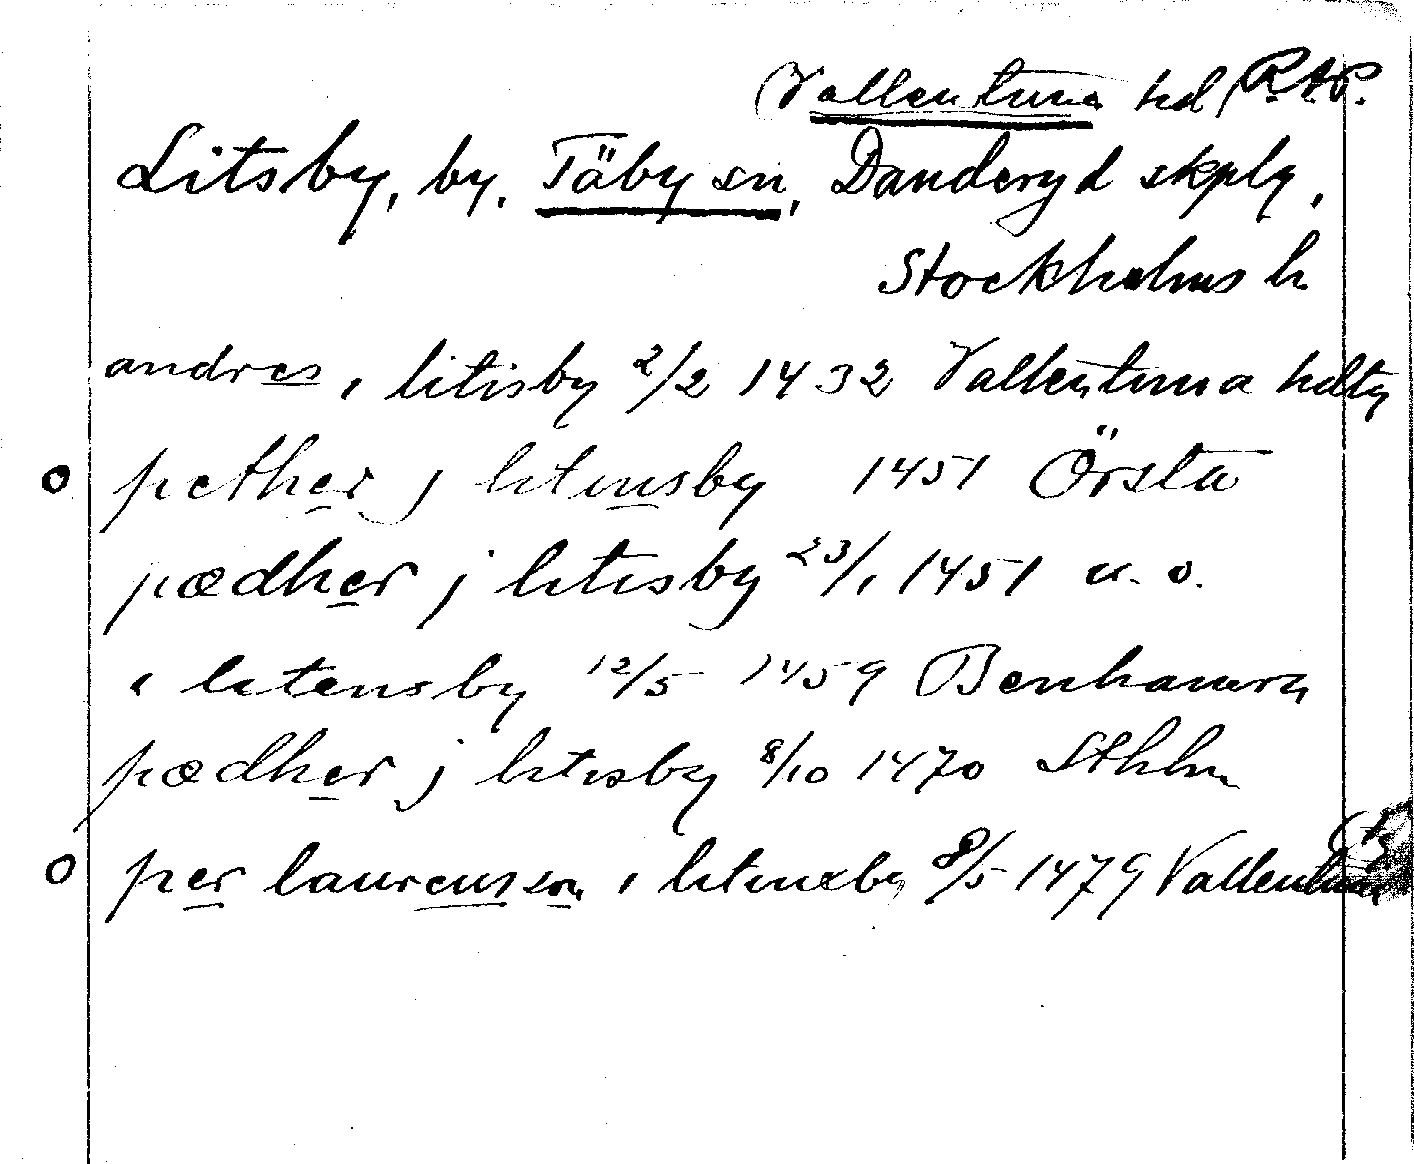 (Vallentuna hd) R.A.P.
Litsby, by, Täby sn, Danderyd skplg,
Stockholms l.
andres i litisby 2/2 1432 Vallentuna hdtg
o pether j litinsby 1451 Örsta
pædher j litisby 23/1 1451 u. o.
i litensby 12/5 1459 Benhamra
pædher j litisby 8/10 1470 Sthlm
o per laurensson i litinxby 8/5 1479 Vallentuna